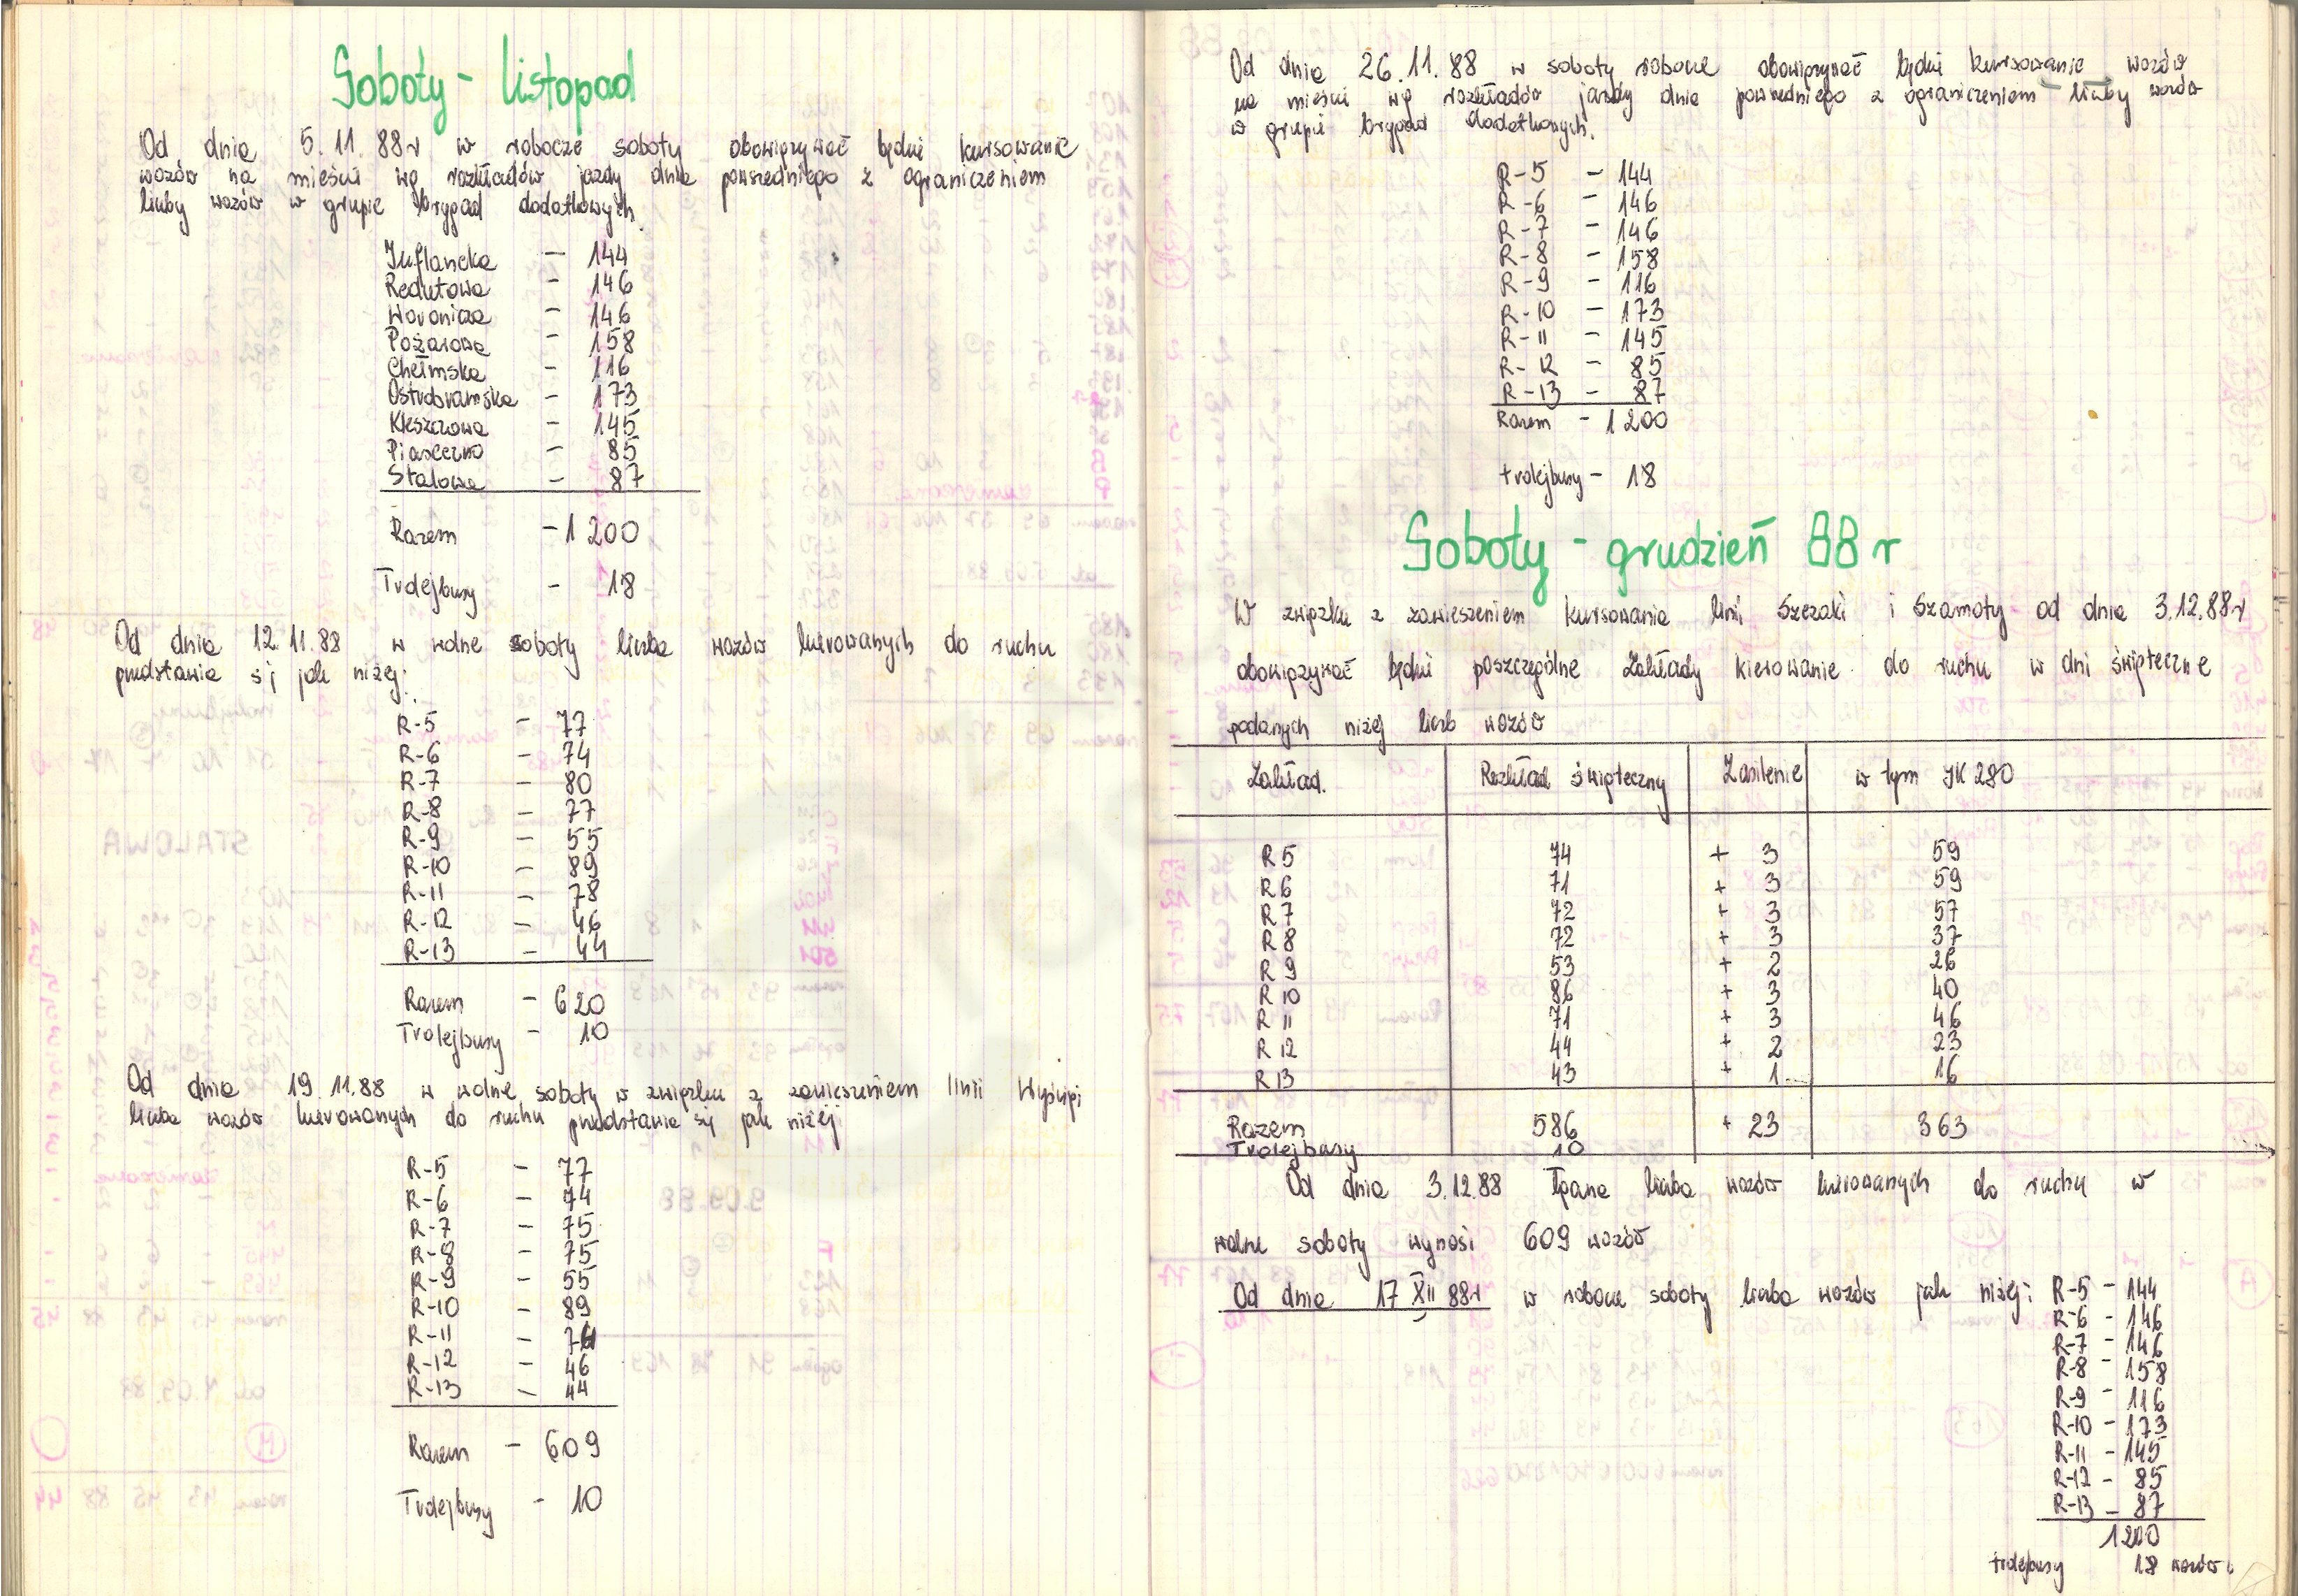 Soboty - listopad
Od dnia 5.11.88r w robocze soboty obowiązywać będzie kursowanie
wozów na mieście wg rozkładów jazdy dnia powszedniego z ograniczeniem
liczby wozów w grupie brygad dodatkowych.
Inflancka - 144
Redutowa - 146
Woronicza - 146
Pożarowa - 158
Chełmska - 116
Ostrobramska - 173
Kleszczowa - 145
Piaseczno - 85
Stalowa - 87
Razem - 1 200
Trolejbusy - 18
Od dnia 12.11.88 w wolne soboty liczba wozów kierowanych do ruchu
przedstawia się jak niżej:
R-5 - 77
R-6 - 74
R-7 - 80
R-8 - 77
R-9 - 55
R-10 - 89
R-11 - 78
R-12 - 46
R-13 - 44
Razem - 620
Trolejbusy - 10
Od dnia 19.11.88 w wolne soboty w związku z zawieszeniem linii Wyścigi
liczba wozów kierowanych do ruchu przedstawia się jak niżej
R-5 - 77
R-6 - 74
R-7 - 75
R-8 - 75
R-9 - 55
R-10 - 89
R-11 - 74
R-12 - 46
R-13 - 44
Razem - 609
Trolejbusy - 10
Od dnia 26.11.88 w soboty robocze obowiązywać będzie kursowanie wozów
na mieście wg rozkładów jazdy dnia powszedniego z ograniczeniem liczby wozów
w grupie brygad dodatkowych.
R-5 - 144
R-6 - 146
R-7 - 146
R-8 - 158
R-9 - 116
R-10 - 173
R-11 - 145
R-12 - 85
R-13 - 87
Razem - 1 200
trolejbusy - 18
Soboty - grudzień 88 r
W związku z zawieszeniem kursowania linii Szczaki i Szamoty od dnia 3.12.88r
obowiązywać będzie poszczególne Zakłady kierowanie do ruchu w dni świąteczne
podanych niżej liczb wozów
Zakład. Rozkład świąteczny Zasilenie w tym IK 280
R 5 74 + 3 59
R 6 71 + 3 59
R 7 72 + 3 57
R 8 72 + 3 37
R 9 53 + 2 26
R 10 86 + 3 40
R 11 71 + 3 46
R 12 44 + 2 23
R 13 43 + 1 16
Razem 586 + 23 363
Trolejbusy 10
Od dnia 3.12.88 łączna liczba wozów kierowanych do ruchu w
wolne soboty wynosi 609 wozów
Od dnia 17 XII 88r w robocze soboty liczba wozów jak niżej: R-5 - 144
R-6 - 146
R-7 - 146
R-8 - 158
R-9 - 116
R-10 - 173
R-11 - 145
R-12 - 85
R-13 - 87
1200
trolejbusy 18 wozów